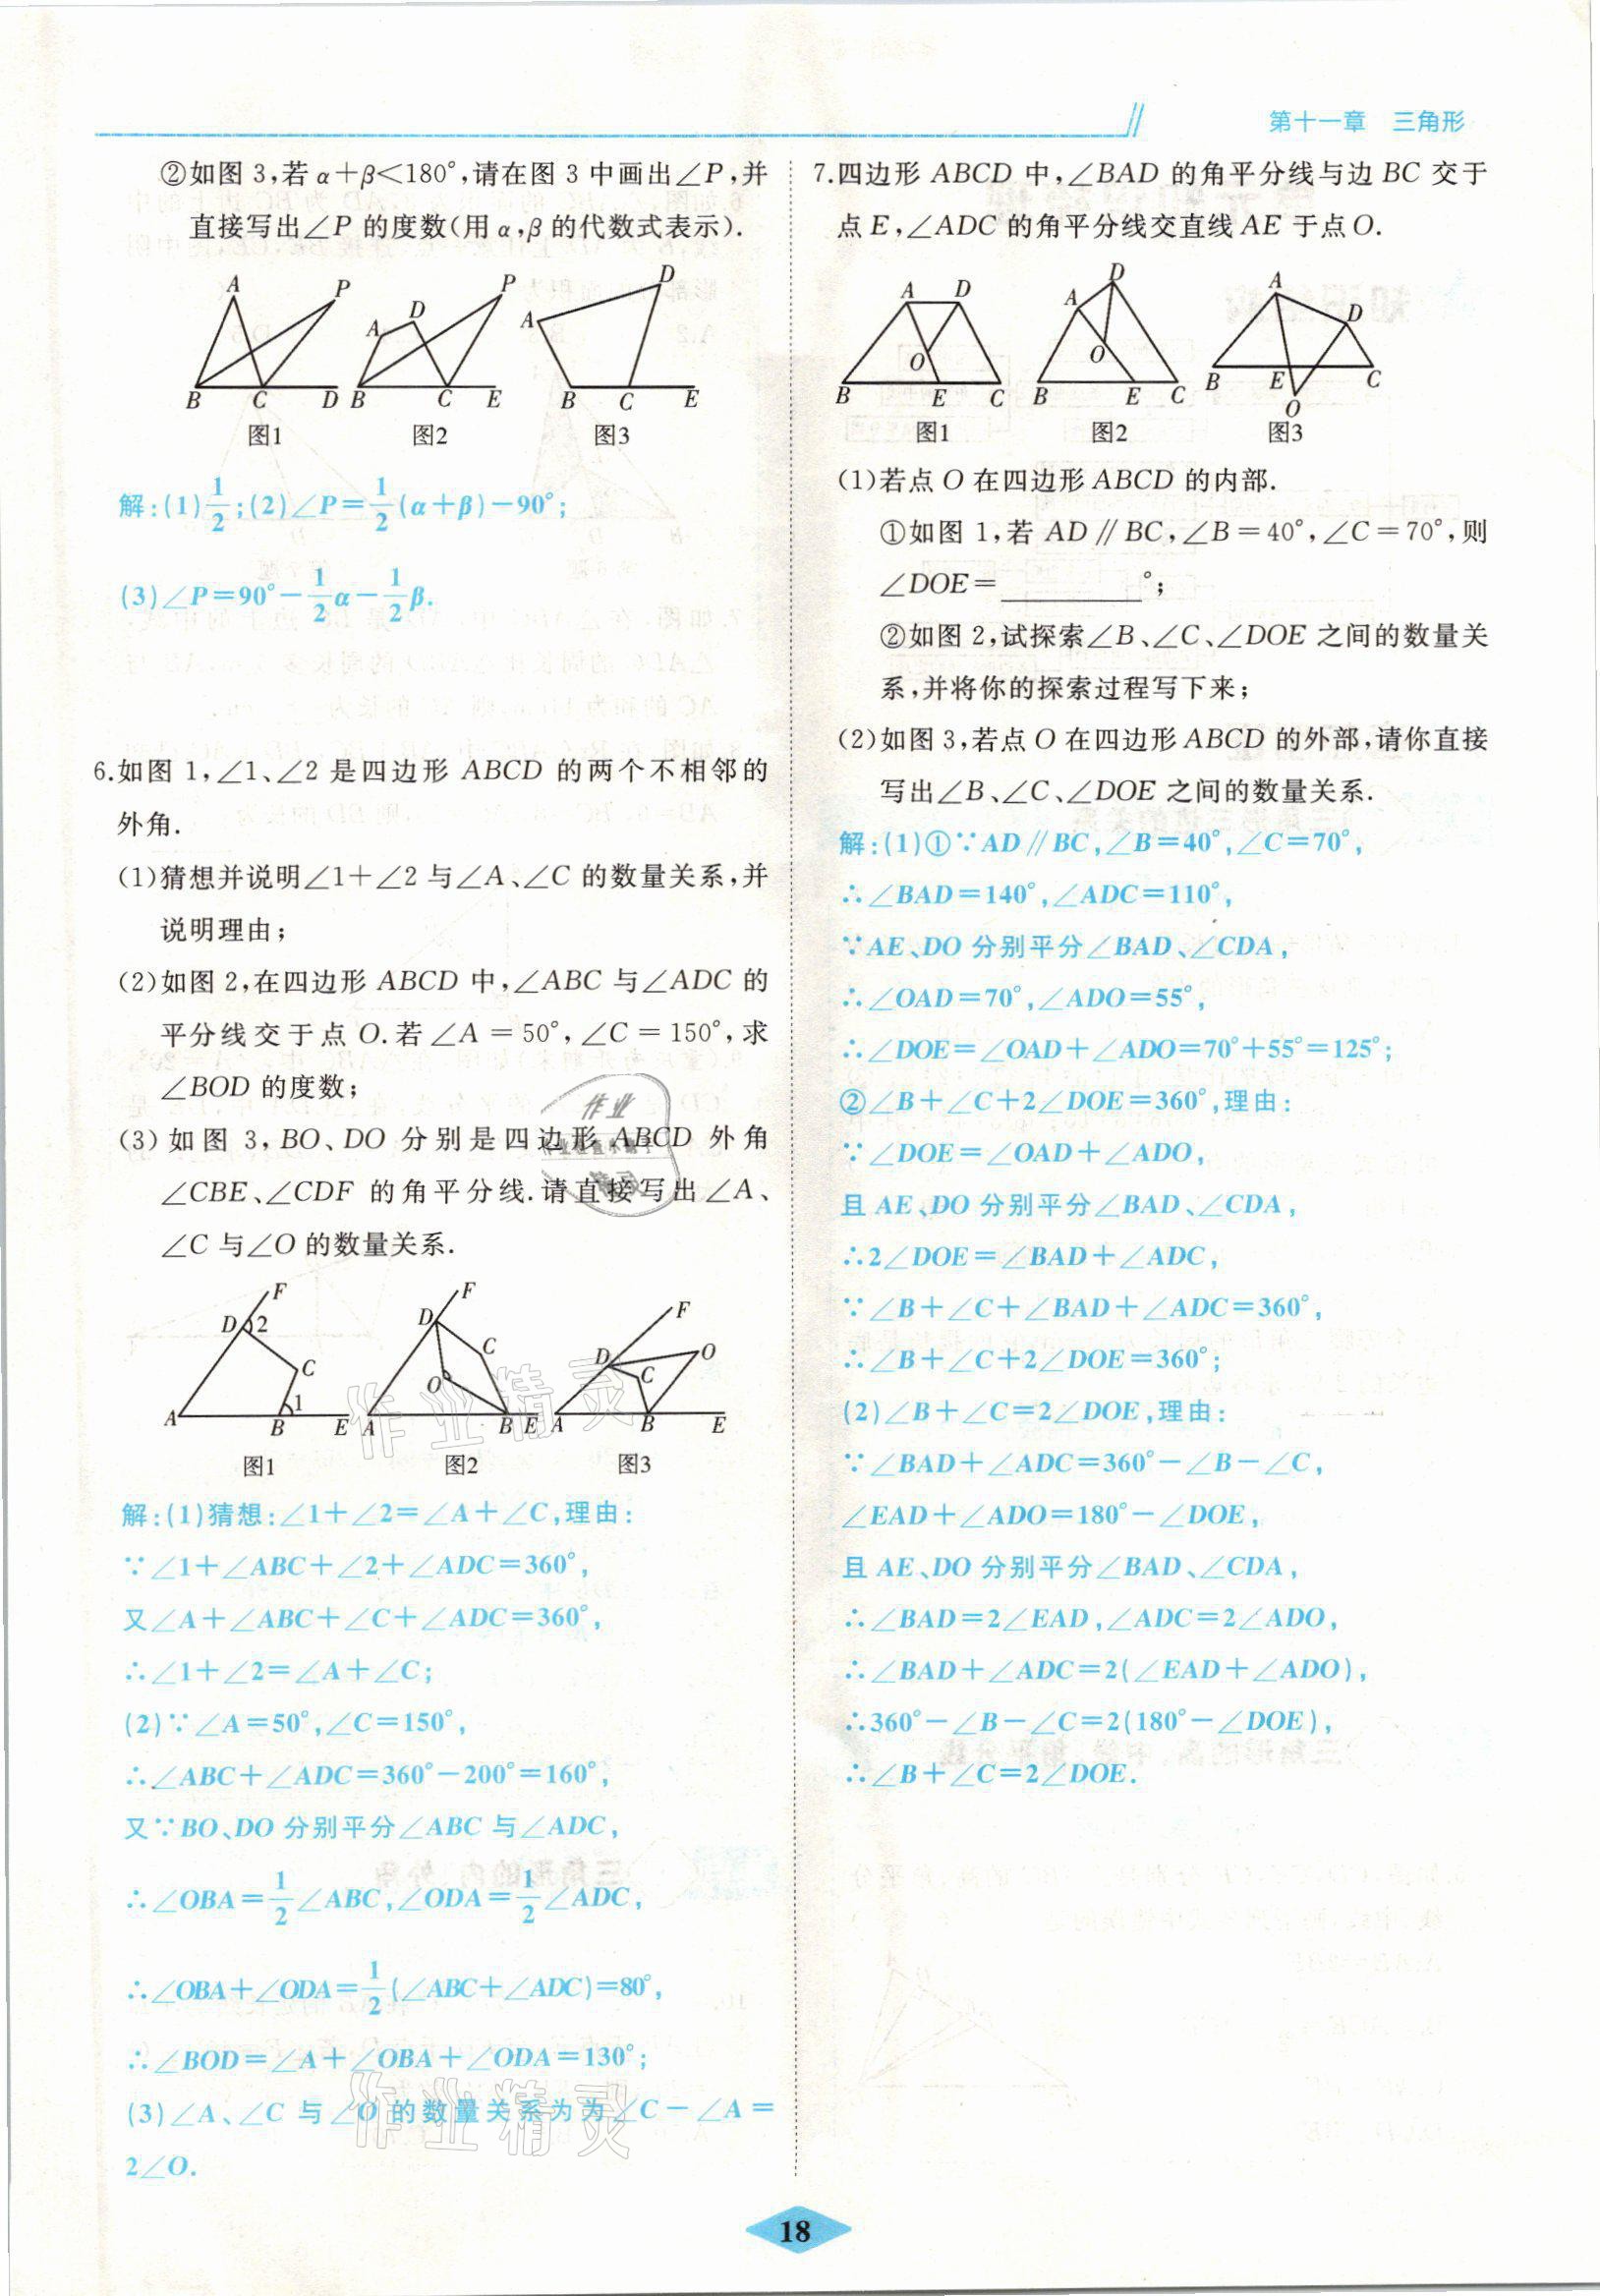 第十一章 三角形
②如图 3,若 α+β<180°,请在图 3 中画出∠P,并
直接写出∠P 的度数(用 α,β 的代数式表示).
A P B C D
图1
A D P B C E
图2
A D B C E
图3
解:(1)1/2;(2)∠P=1/2(α+β)-90°;
(3)∠P=90°-1/2α-1/2β.
6.如图 1,∠1、∠2 是四边形 ABCD 的两个不相邻的
外角.
(1)猜想并说明∠1+∠2 与∠A、∠C 的数量关系,并
说明理由;
(2)如图 2,在四边形 ABCD 中,∠ABC 与∠ADC 的
平分线交于点 O.若∠A=50°,∠C=150°,求
∠BOD 的度数;
(3)如图 3,BO、DO 分别是四边形 ABCD 外角
∠CBE、∠CDF 的角平分线.请直接写出∠A、
∠C 与∠O 的数量关系.
F D 2 C A 1 B E
图1
F D C O A B E
图2
F D C O A B E
图3
解:(1)猜想:∠1+∠2=∠A+∠C,理由:
∵∠1+∠ABC+∠2+∠ADC=360°,
又∠A+∠ABC+∠C+∠ADC=360°,
∴∠1+∠2=∠A+∠C;
(2)∵∠A=50°,∠C=150°,
∴∠ABC+∠ADC=360°-200°=160°,
又∵BO、DO 分别平分∠ABC 与∠ADC,
∴∠OBA=1/2∠ABC,∠ODA=1/2∠ADC,
∴∠OBA+∠ODA=1/2(∠ABC+∠ADC)=80°,
∴∠BOD=∠A+∠OBA+∠ODA=130°;
(3)∠A、∠C 与∠O 的数量关系为为∠C-∠A=
2∠O.
7.四边形 ABCD 中,∠BAD 的角平分线与边 BC 交于
点 E,∠ADC 的角平分线交直线 AE 于点 O.
A D O B E C
图1
D A O B E C
图2
A D B E C O
图3
(1)若点 O 在四边形 ABCD 的内部.
①如图 1,若 AD∥BC,∠B=40°,∠C=70°,则
∠DOE=________°;
②如图 2,试探索∠B、∠C、∠DOE 之间的数量关
系,并将你的探索过程写下来;
(2)如图 3,若点 O 在四边形 ABCD 的外部,请你直接
写出∠B、∠C、∠DOE 之间的数量关系.
解:(1)①∵AD∥BC,∠B=40°,∠C=70°,
∴∠BAD=140°,∠ADC=110°,
∵AE、DO 分别平分∠BAD、∠CDA,
∴∠OAD=70°,∠ADO=55°,
∴∠DOE=∠OAD+∠ADO=70°+55°=125°;
②∠B+∠C+2∠DOE=360°,理由:
∵∠DOE=∠OAD+∠ADO,
且 AE、DO 分别平分∠BAD、∠CDA,
∴2∠DOE=∠BAD+∠ADC,
∵∠B+∠C+∠BAD+∠ADC=360°,
∴∠B+∠C+2∠DOE=360°;
(2)∠B+∠C=2∠DOE,理由:
∵∠BAD+∠ADC=360°-∠B-∠C,
∠EAD+∠ADO=180°-∠DOE,
且 AE、DO 分别平分∠BAD、∠CDA,
∴∠BAD=2∠EAD,∠ADC=2∠ADO,
∴∠BAD+∠ADC=2(∠EAD+∠ADO),
∴360°-∠B-∠C=2(180°-∠DOE),
∴∠B+∠C=2∠DOE.
作业精灵
作业精灵
18